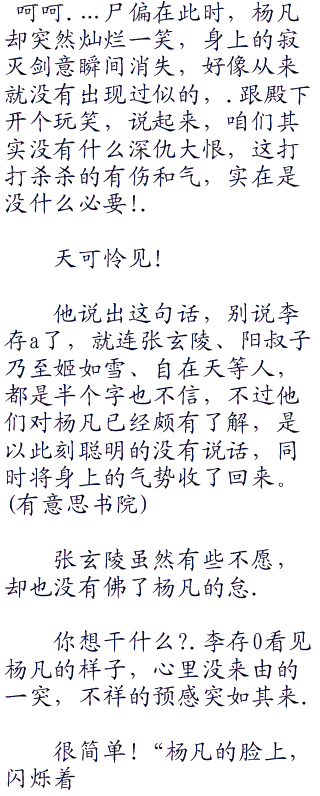 呵呵....尸偏在此时，杨凡
却突然灿烂一笑，身上的寂
灭剑意瞬间消失，好像从来
就没有出现过似的，.跟殿下
开个玩笑，说起来，咱们其
实没有什么深仇大恨，这打
打杀杀的有伤和气，实在是
没什么必要!.
天可怜见!
他说出这句话，别说李
存a了，就连张玄陵、阳叔子
乃至姬如雪、自在天等人，
都是半个字也不信，不过他
们对杨凡已经颇有了解，是
以此刻聪明的没有说话，同
时将身上的气势收了回来。
(有意思书院)
张玄陵虽然有些不愿，
却也没有佛了杨凡的怠.
你想干什么?.李存0看见
杨凡的样子，心里没来由的
一突，不祥的预感突如其来.
很简单!“杨凡的脸上，
闪烁着